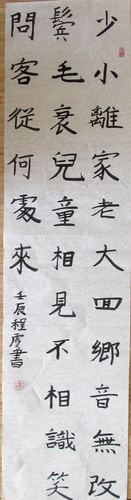 少小離家老大回鄉音無改
鬢毛衰兒童相見不相識笑
問客從何處來
壬辰程虎書